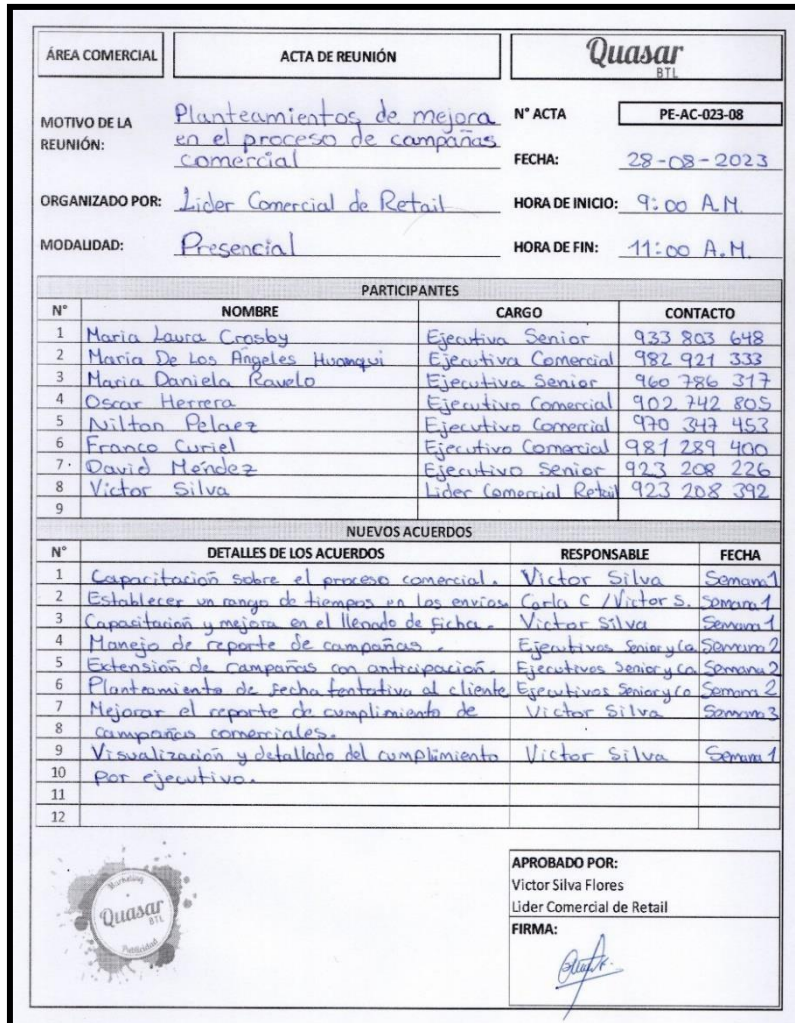 ÁREA COMERCIAL ACTA DE REUNIÓN Quasar BTL
MOTIVO DE LA REUNIÓN: Planteamientos de mejora en el proceso de campañas comercial
N° ACTA PE-AC-023-08
FECHA: 28-08-2023
ORGANIZADO POR: Lider Comercial de Retail HORA DE INICIO: 9:00 A.M.
MODALIDAD: Presencial HORA DE FIN: 11:00 A.M.
PARTICIPANTES
N° NOMBRE CARGO CONTACTO
1 Maria Laura Crosby Ejecutiva Senior 933 803 648
2 Maria De Los Angeles Huamqui Ejecutiva Comercial 982 921 333
3 Maria Daniela Ravelo Ejecutiva Senior 960 786 317
4 Oscar Herrera Ejecutivo Comercial 902 742 805
5 Nilton Pelaez Ejecutivo Comercial 970 347 453
6 Franco Curiel Ejecutivo Comercial 981 289 400
7 David Méndez Ejecutivo Senior 923 208 226
8 Victor Silva Lider Comercial Retail 923 208 392
9
NUEVOS ACUERDOS
N° DETALLES DE LOS ACUERDOS RESPONSABLE FECHA
1 Capacitación sobre el proceso comercial. Victor Silva Semana 1
2 Establecer un rango de tiempos en los envios Carla C / Victor S. Semana 1
3 Capacitación y mejora en el llenado de ficha. Victor Silva Semana 1
4 Manejo de reporte de campañas. Ejecutivos Senior y Co Semana 2
5 Extensión de campañas con anticipación. Ejecutivos Senior y Co Semana 2
6 Planteamiento de fecha tentativa al cliente Ejecutivos Senior y Co Semana 2
7 Mejorar el reporte de cumplimiento de Victor Silva Semana 3
8 campañas comerciales.
9 Visualización y detallado del cumplimiento Victor Silva Semana 1
10 por ejecutivo.
11
12
Marketing
Quasar BTL
Publicidad
APROBADO POR:
Victor Silva Flores
Lider Comercial de Retail
FIRMA: